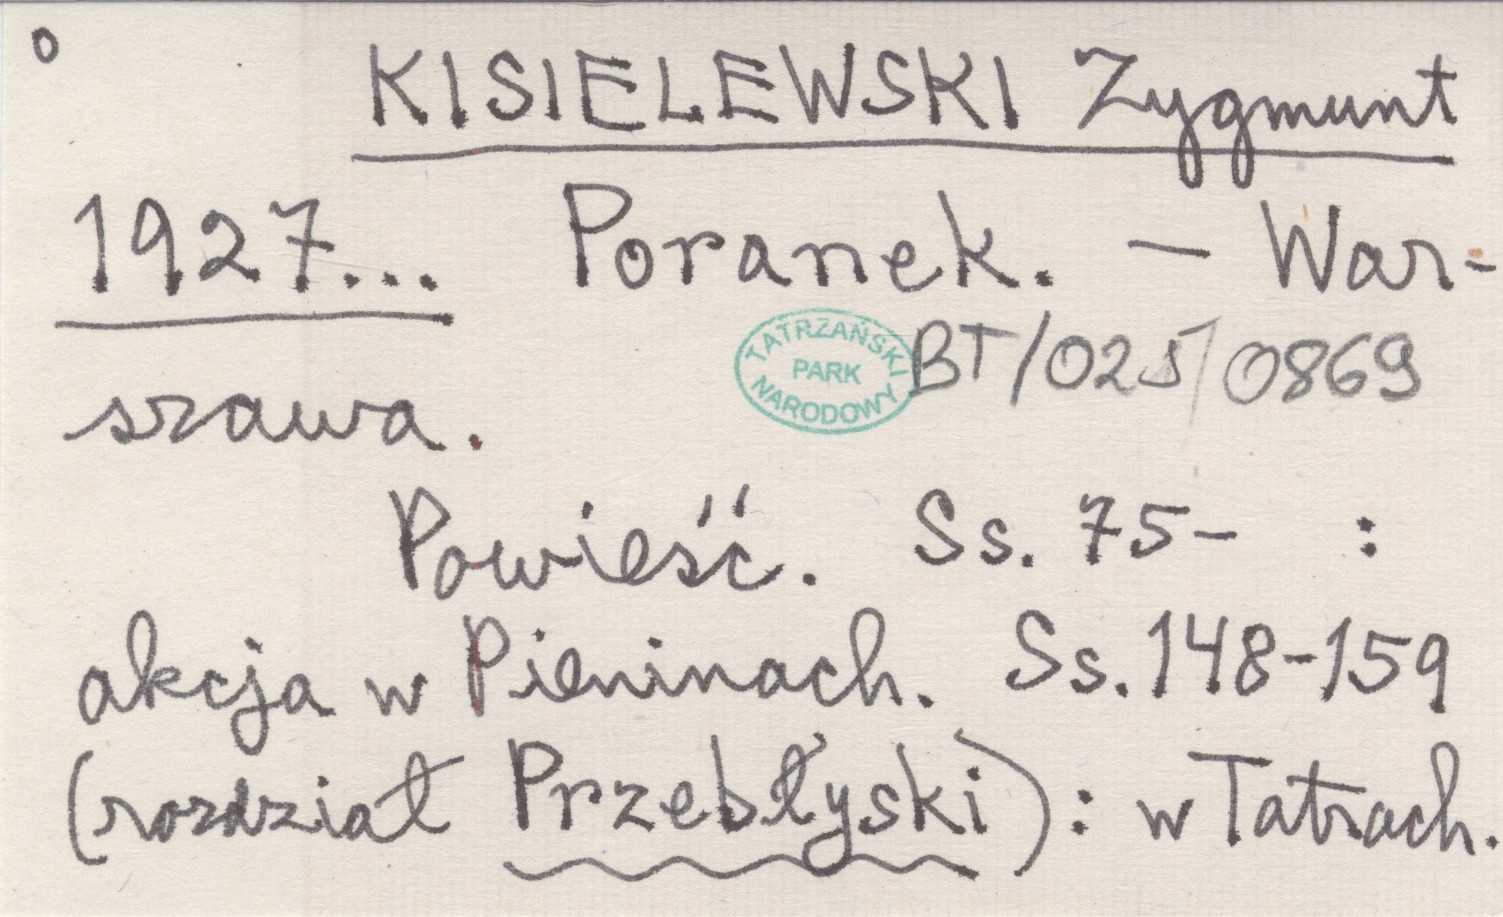 o
KISIELEWSKI Zygmunt
1927... Poranek. — War-
TATRZAŃSKI PARK NARODOWY BT/025/0869
szawa.
Powieść. Ss. 75- :
akcja w Pieninach. Ss. 148-159
(rozdział Przebłyski): w Tatrach.